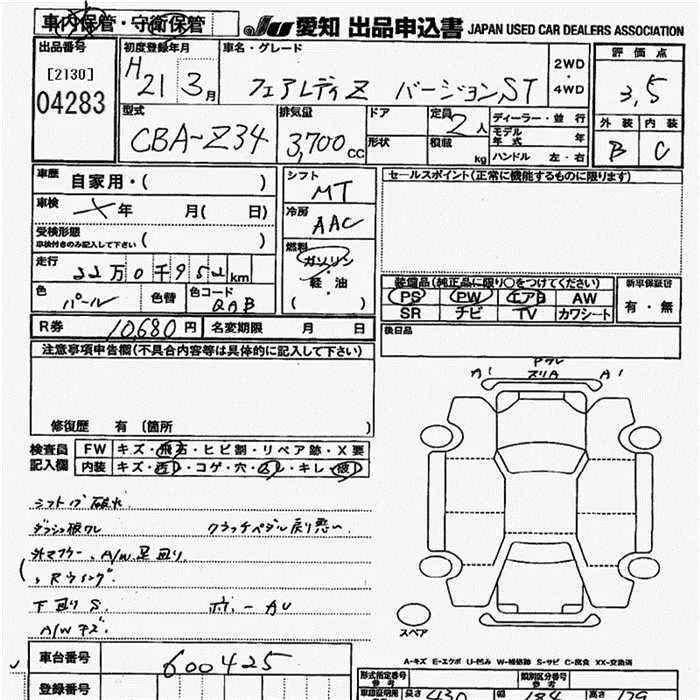 車内保管・守衛保管
JU 愛知 出品申込書 JAPAN USED CAR DEALERS ASSOCIATION
出品番号
[2130]
04283
初度登録年月
H21 3月
車名・グレード
フェアレディZ バージョンST
2WD・4WD
評価点
3,5
外装 内装
B C
型式
CBA-Z34
排気量
3,700cc
ドア
形状
定員 2人
積載 kg
ディーラー・並行
モデル年式 年
ハンドル 左・右
車歴 自家用・( )
車検 年 月( 日)
受検形態
車検付きのみ記入して下さい ( )
走行 22万0千952km
色 パール 色替 色コード QAB
シフト MT
冷房 AAC
燃料 ガソリン・軽油
( )
セールスポイント(正常に機能するものに限ります)
装備品(純正品に限り○をつけてください)
PS PW エアB AW
SR ナビ TV カワシート
新車保証書
有・無
後日品
R券 10,680円 名変期限 月 日
注意事項申告欄(不具合内容等は具体的に記入して下さい)
修復歴 有(箇所 )
検査員記入欄
FW キズ・飛石・ヒビ割・リペア跡・X要
内装 キズ・汚レ・コゲ・穴・スレ・キレ・破レ
シフトノブ破れ
ダッシュ板ワレ クラッチペダル戻り悪い
外マフラー、A/W 足回り
下回りS ボディーAU
A/Wキズ
A1 スリA A1
スペア
A-キズ E-エクボ U-凹み W-補修跡 S-サビ C-腐食 XX-交換済
車台番号 600425
登録番号
型式指定番号 類別区分番号
参考 参考
長さ 430 幅 184 高さ 129